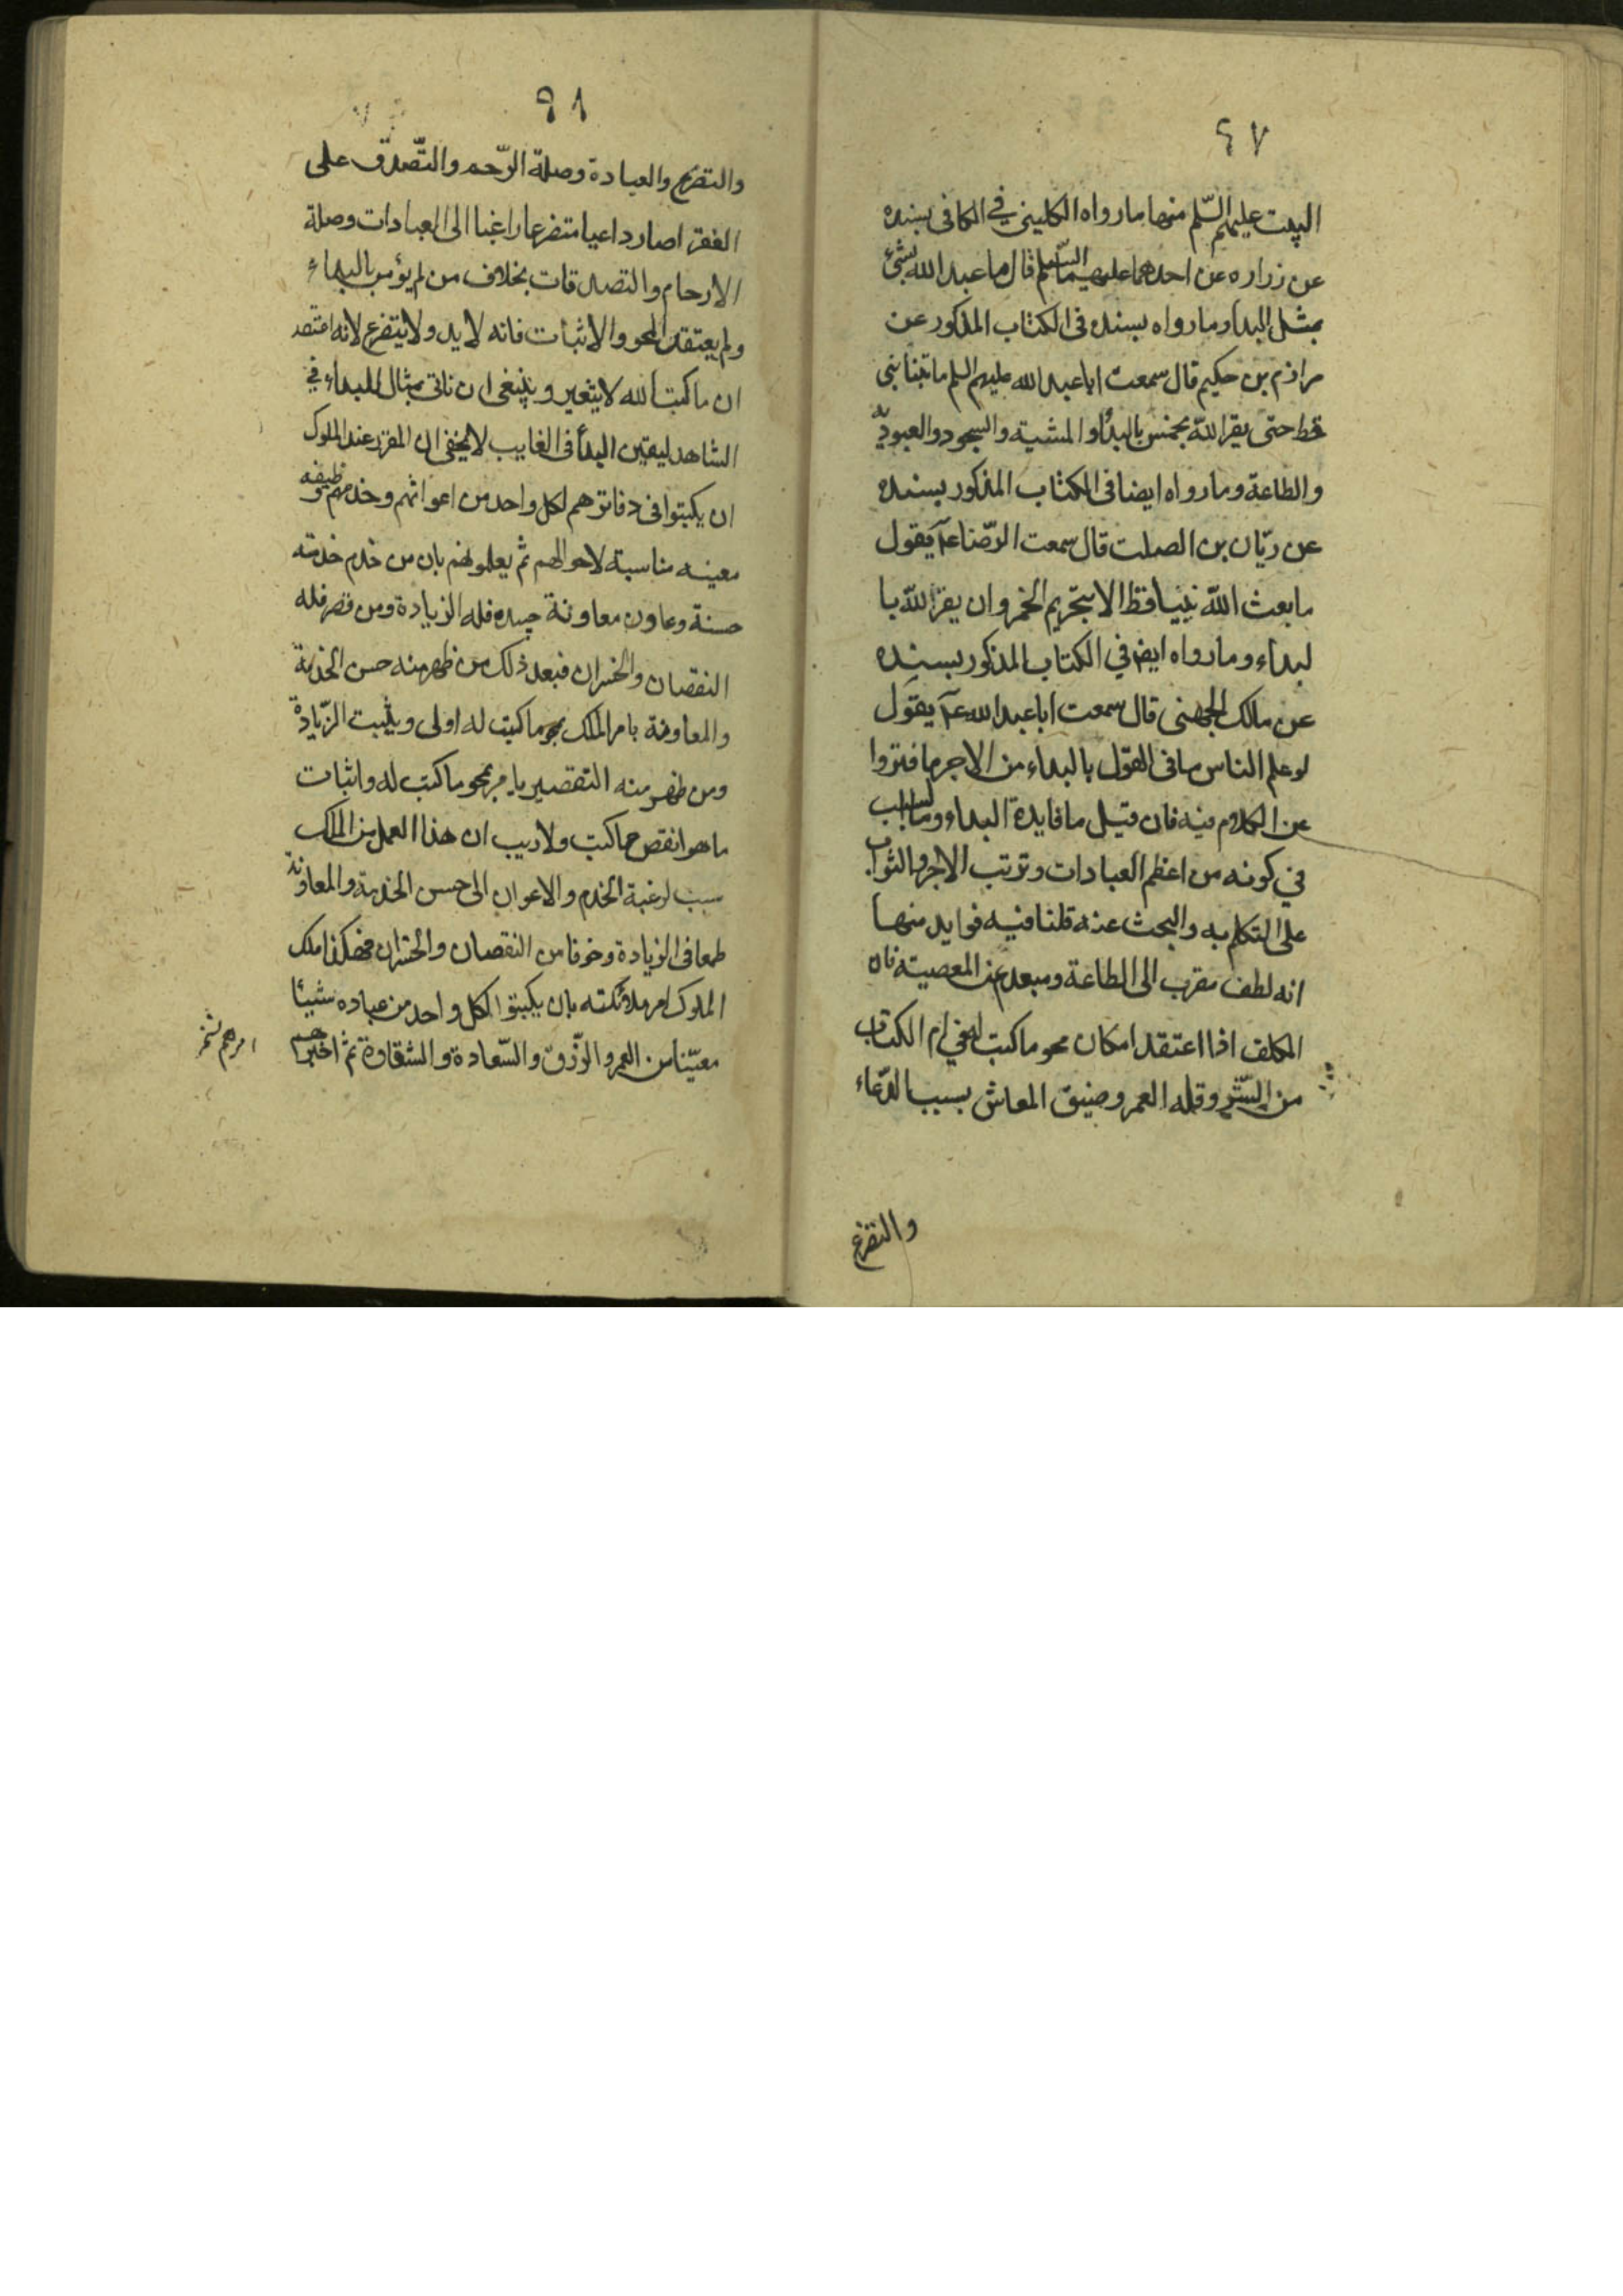 ٤٧
البيت عليهم السّلم منها ما رواه الكلينى في الكافى بسنده
عن زراره عن احدهما عليهما السّلم قال ما عبد الله بشئ
بمثل البداء وما رواه بسنده فى الكتاب المذكور عن
مرازم بن حكيم قال سمعت ابا عبد الله عليهم السلم ما تنبأ نبى
قط حتى يقر الله بخمس بالبداء والمشية والسجود والعبوديّة
والطاعة وما رواه ايضا فى الكتاب المذكور بسنده
عن ريّان بن الصلت قال سمعت الرّضا عم يقول
ما بعث الله نبيا قط الا بتحريم الخمر وان يقر الله با
لبداء وما رواه ايض في الكتاب المذكور بسنده
عن مالك الجهنى قال سمعت ابا عبد الله عم يقول
لو علم الناس ما فى القول بالبداء من الاجر ما فتروا
عن الكلام فيه فان قيل ما فايدة البداء وما السبب
في كونه من اعظم العبادات وترتب الاجر والثواب
على التكلم به والبحث عنه قلنا فيه فوايد منها
انه لطف مقرب الى الطاعة ومبعد عن المعصية فان
المكلف اذا اعتقد امكان محو ما كتب له في ام الكتاب
من الشّر وقله العمر وضيق المعاش بسبب الدّعاء
والتضرع
٩٨
والتضرع والعبادة وصلة الرّحم والتّصدق على
الفقرا صار داعيا متضرعا راغبا الى العبادات وصلة
الارحام والتصدقات بخلاف من لم يؤمن بالبداء
ولم يعتقد المحو والاثبات فانه لا يد ولا يتضرع لانه اعتقد
ان ما كتب الله لا يتغير وينبغى ان ناتى بمثال للبداء في
الشاهد ليقين البدأ فى الغايب لا يخفى ان المقرر عند الملوك
ان يكتبوا فى دفاترهم لكل واحد من اعوانهم وخدمهم وظيفه
معينه مناسبة لاحوالهم ثم يعلمونهم بان من خدم خدمته
حسنة وعاون معاونة جيده فله الزيادة ومن قصر فله
النقصان والخسران فبعد ذلك من ظهر منه حسن الخدمة
والمعاونة يامر الملك بمحو ما كتب له اولى ويثبت الزّيادة
ومن ظهر منه التقصير يامر بمحو ما كتب له واثبات
ما هو انقص مما كتب ولا ريب ان هذا العمل من الملك
سبب لرغبة الخدم والاعوان الى حسن الخدمة والمعاونة
طمعا فى الزيادة وخوفا من النقصان والخسران فهكذا ملك
الملوك امر ملائكته بان يكتبوا لكل واحد من عباده شيئا
معيّنا من العمر والرّزق والسّعادة والشقاوة ثم اخبرهم